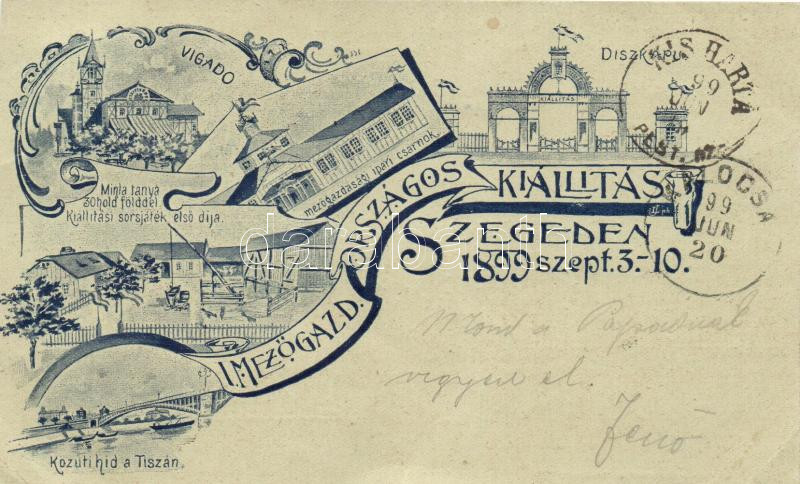 VIGADO
Diszkapu
KIÁLLITÁS
mezőgazdasági ipari csarnok.
Minta tanya
30 hold földdel
Kiállítási sorsjáték első dija.
I. MEZŐGAZD. ORSZÁGOS KIÁLLITÁS
SZEGEDEN
1899 szept. 3-10.
Közúti hid a Tiszán.
KIS HARTA
99
PEST.
LOCSA
99
JUN
20
Mond a Papádnak
vigyen el.
Jenő
darabanth